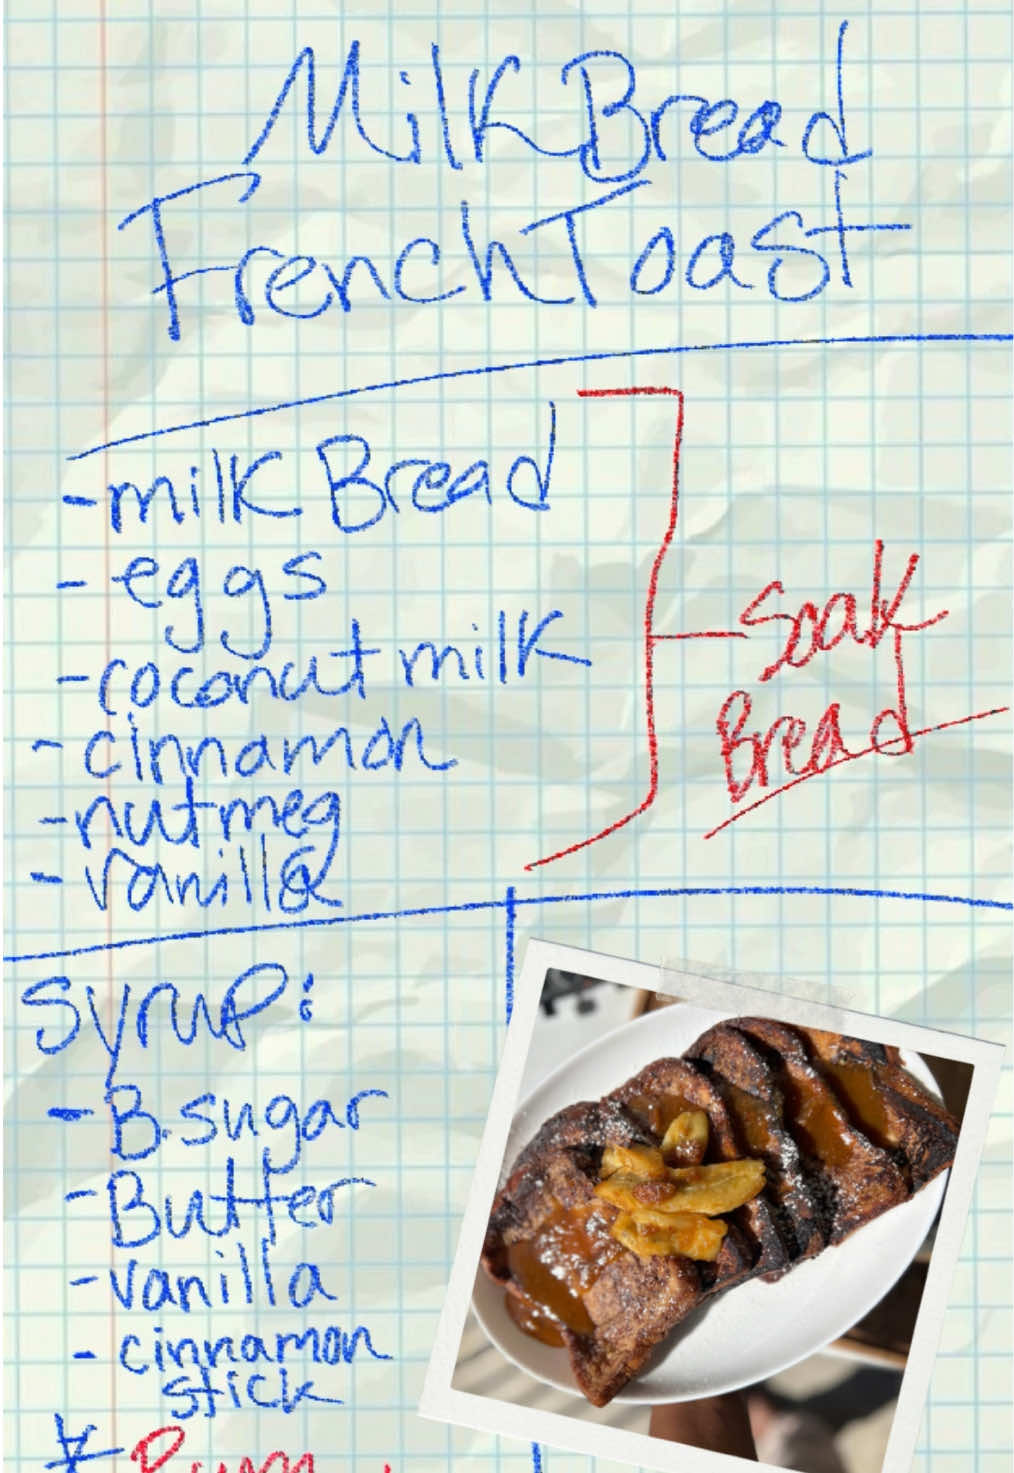 Milk Bread
French Toast
- milk Bread
- eggs
- coconut milk
- cinnamon
- nutmeg
- vanilla
Soak
Bread
Syrup:
- B. sugar
- Butter
- vanilla
- cinnamon
stick
* Rum